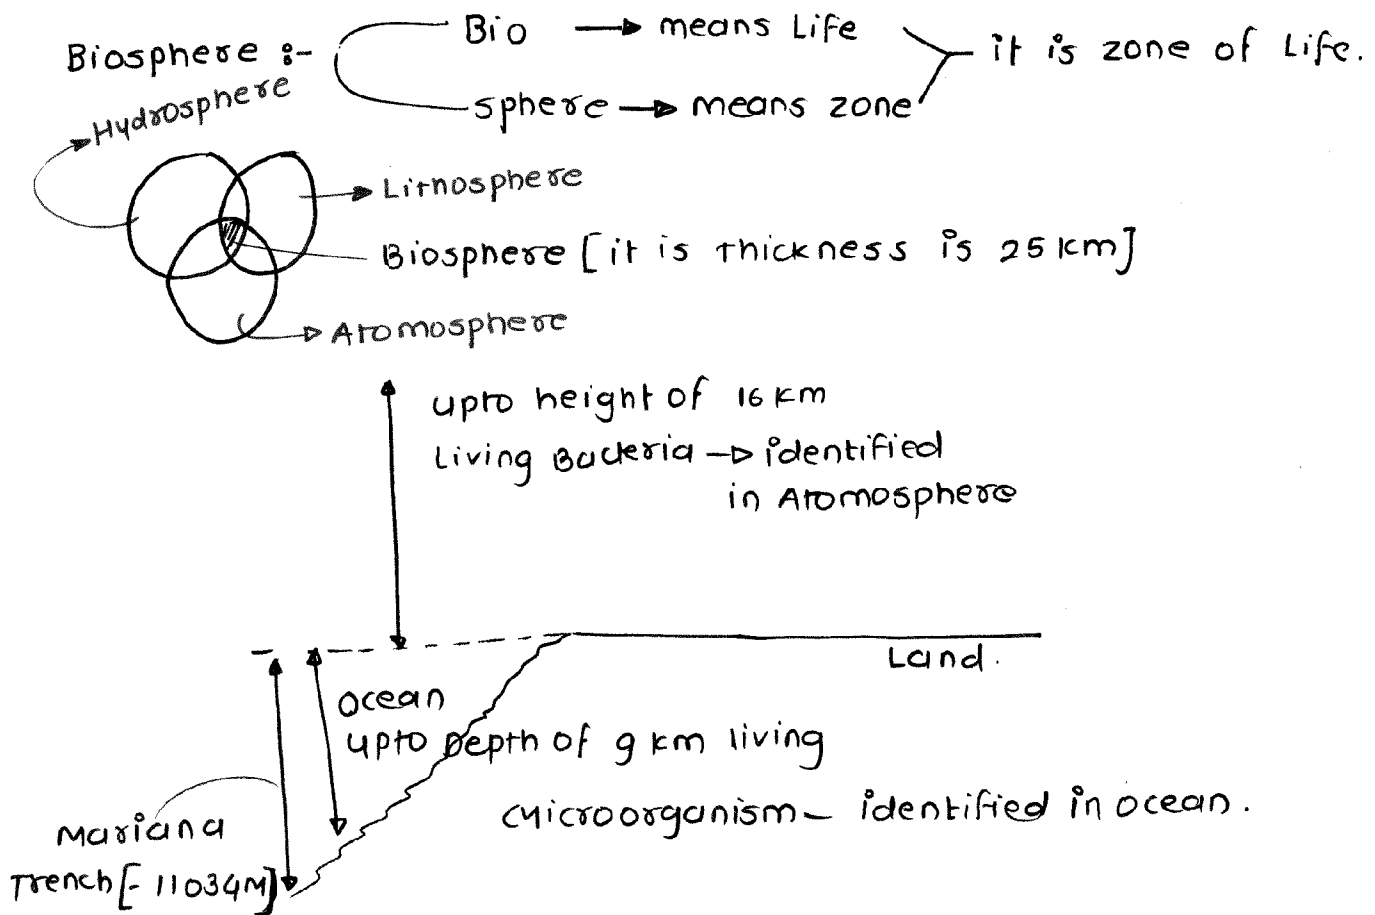 Bio → means Life
Biosphere :- it is zone of Life.
sphere → means zone
Hydrosphere
Lithosphere
Biosphere [it is thickness is 25 km]
Atomosphere
upto height of 16 km
Living Bacteria → identified
in Atomosphere
Land.
Ocean
upto Depth of 9 km living
Microorganism - identified in ocean.
Mariana
Trench [- 11034M]